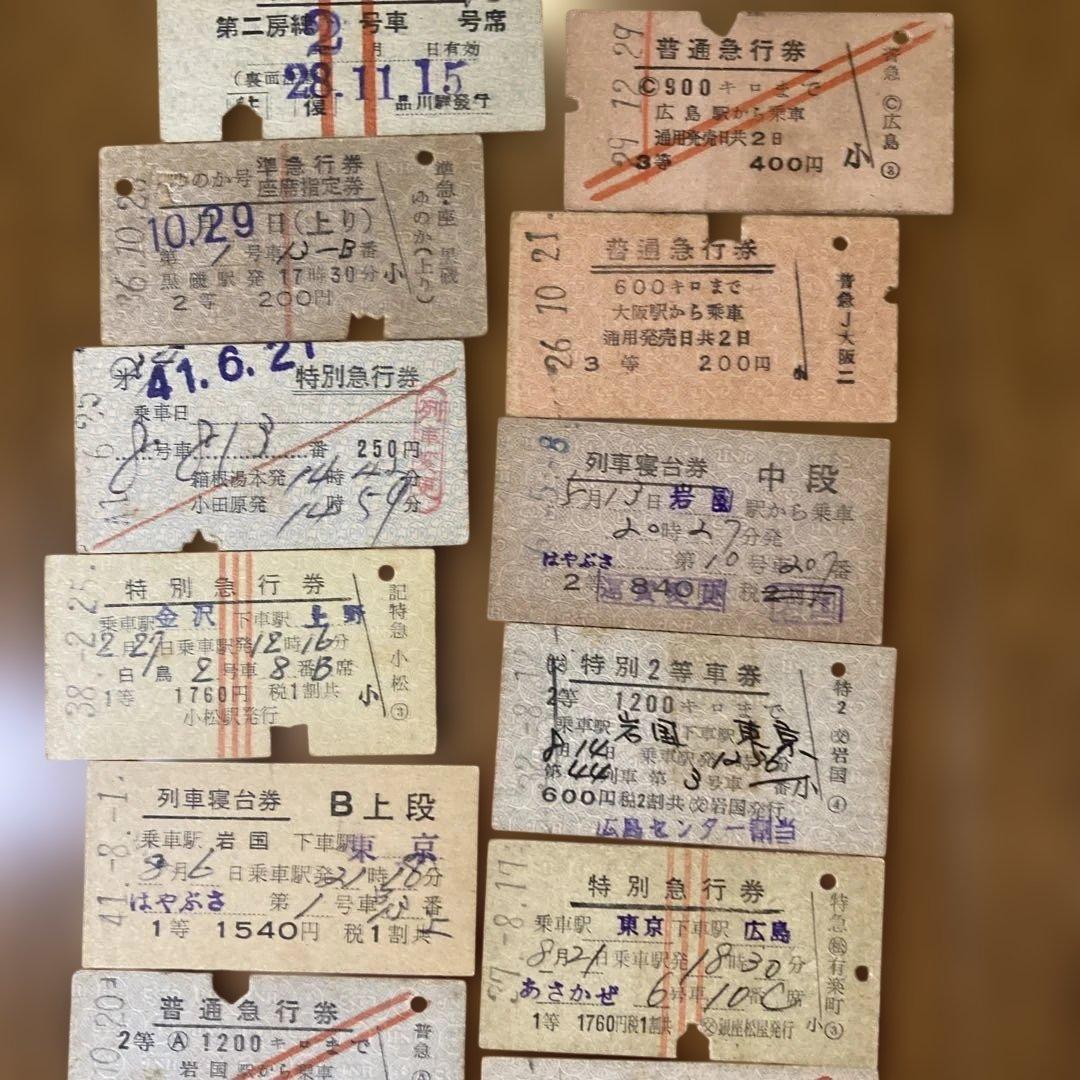 第二房総 2 号車 号席
月 日有効
28.11.15
品川駅発行
準急行券
ゆのか号 座席指定券
10月29日(上り)
第 1 号車 13-B番
黒磯駅発 17時30分
2等 200円
小
準急・座 黒磯
ゆのか(上り)
36.10.2
41.6.21
特別急行券
乗車日
8号車 番 250円
箱根湯本発 14時43分
小田原発 14時59分
特別急行券
乗車駅 金沢 下車駅 上野
2月27日乗車駅発12時16分
白鳥 2号車 8番B席
1等 1760円 税1割共
小松駅発行
小
記特急 小松 ③
38.-2.25.
列車寝台券 B上段
乗車駅 岩国 下車駅 東京
8月6日乗車駅発21時18分
はやぶさ 第1号車 番
上
1等 1540円 税1割共
41.-8.-1.
普通急行券
2等 Ⓐ 1200キロまで
岩国駅から乗車
普急 Ⓐ
10.20
普通急行券
Ⓒ900キロまで
広島駅から乗車
通用発売日共2日
3等 400円
小
普急 Ⓒ広島 ③
29 12 29
普通急行券
600キロまで
大阪駅から乗車
通用発売日共2日
3等 200円
小
普急J大阪二
26 10 21
列車寝台券 中段
5月13日 岩国 駅から乗車
20時27分発
はやぶさ 第10号車207番
2等 840
特別2等車券
2等 1200キロまで
乗車駅 岩国 下車駅 東京
8月14日 乗車駅発12時56分
第44列車 第3号車 番
小
600円税2割共 交岩国発行
広島センター割当
特2 交岩国 ④
特別急行券
乗車駅 東京 下車駅 広島
8月21日乗車駅発18時30分
あさかぜ 6号車10番C席
1等 1760円税1割共 交銀座松屋発行
小
特急 有楽町 ③
37.-8.17.